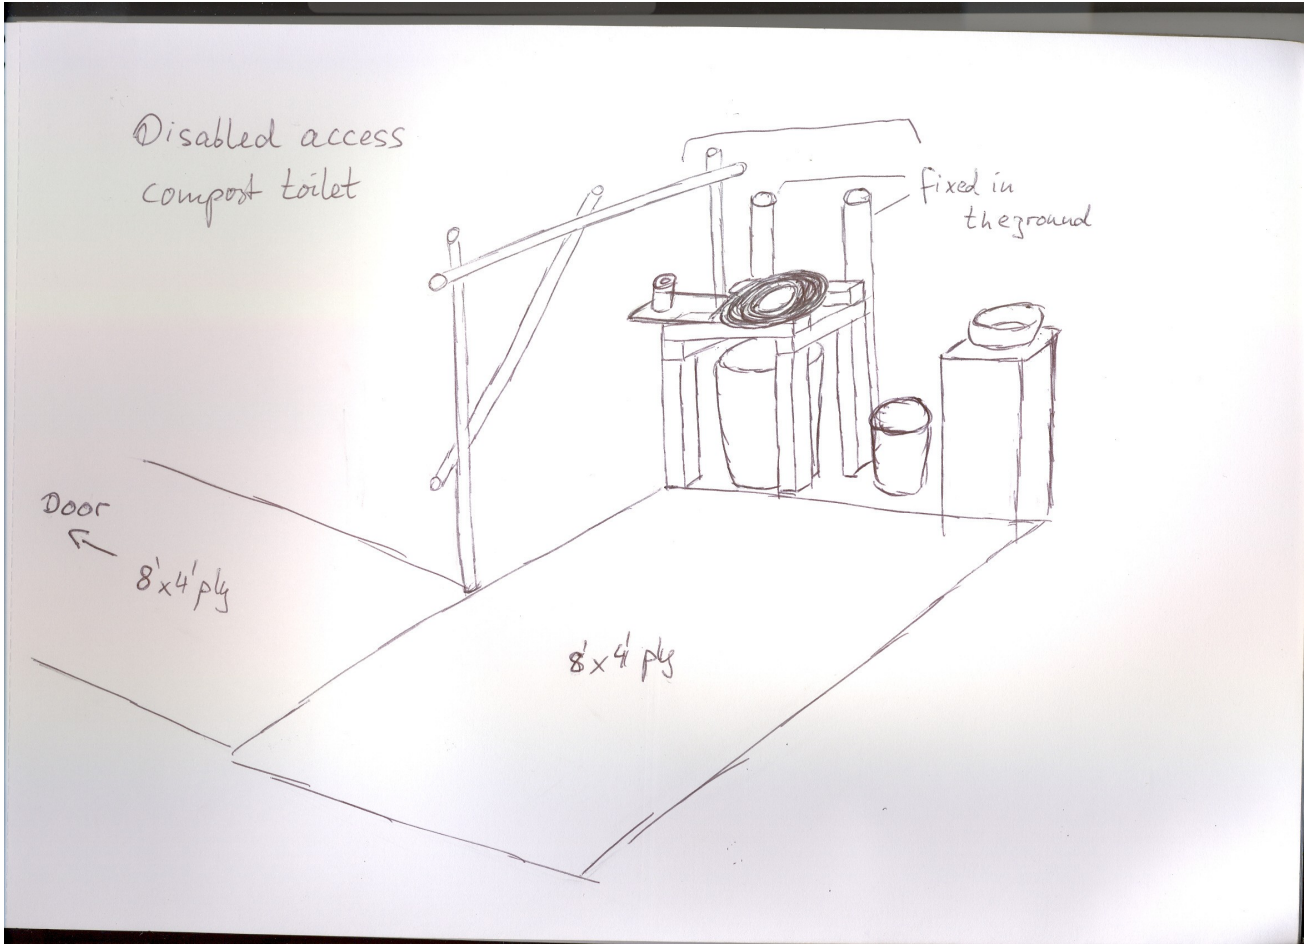 Disabled access
compost toilet
fixed in
the ground
Door
8'x4' ply
8'x4' ply